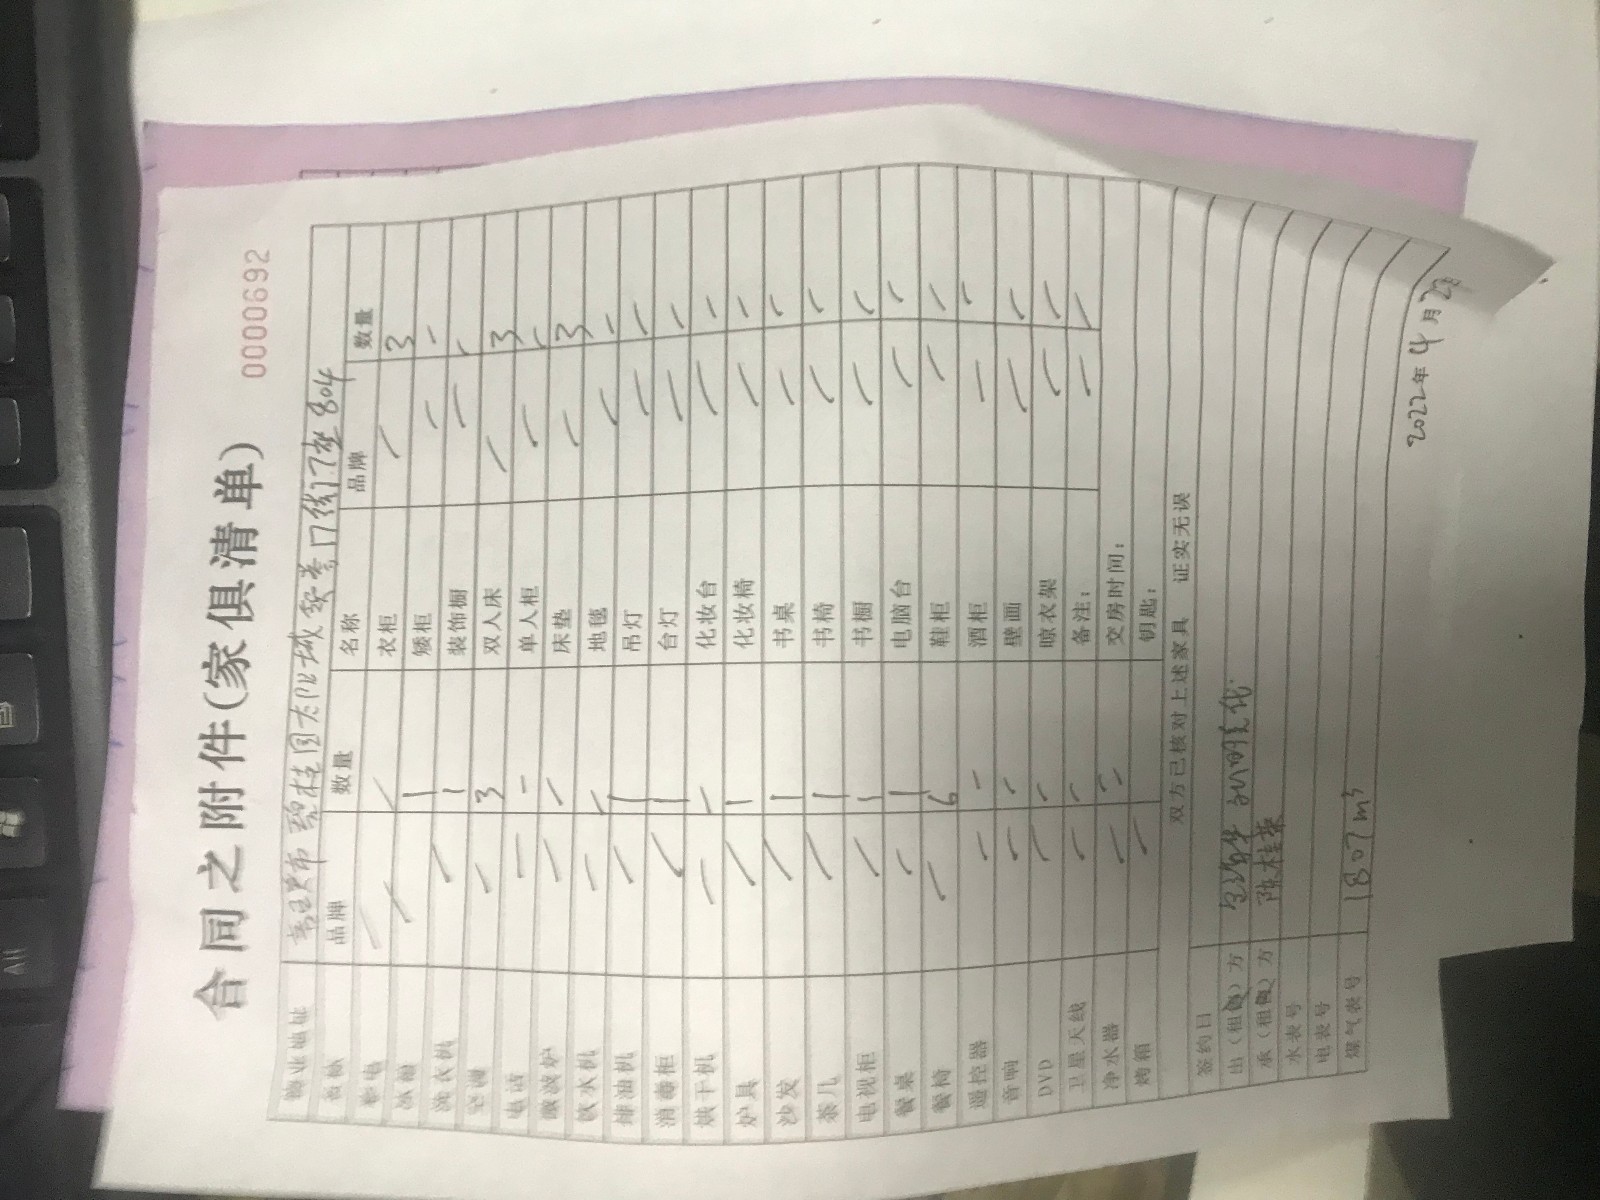 合同之附件(家俱清单)
0000692
物业地址 碧桂园太阳城 7座804
名称 品牌 数量 名称 品牌 数量
彩电 / / 衣柜 / 3
冰箱 / 1 矮柜 / 1
洗衣机 / 1 装饰橱 / 1
空调 / 3 双人床 / 3
电话 / 1 单人柜 / 1
微波炉 / 1 床垫 / 3
饮水机 / 1 地毯 / 1
排油机 / 1 吊灯 / 1
消毒柜 / 1 台灯 / 1
烘干机 / 1 化妆台 / 1
炉具 / 1 化妆椅 / 1
沙发 / 1 书桌 / 1
茶几 / 1 书椅 / 1
电视柜 / 1 书橱 / 1
餐桌 / 1 电脑台 / 1
餐椅 / 6 鞋柜 / 1
遥控器 / 1 酒柜 / 1
音响 / 1 壁画 / 1
DVD / 1 晾衣架 / 1
卫星天线 / 1 备注: / /
净水器 / 1 交房时间:
烤箱 / 钥匙:
双方已核对上述家具 证实无误
签约日
出(租售)方
承(租售)方 陈桂荣
水表号
电表号
煤气表号 1807m³
2022年4月28